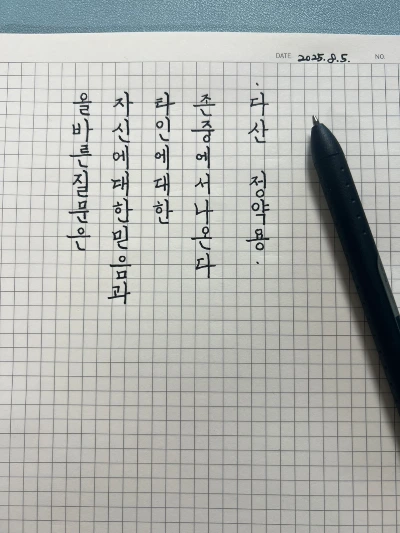 DATE 2025.8.5. NO.
올바른질문은
자신에대한믿음과
타인에대한
존중에서나온다
· 다산 정약용 ·